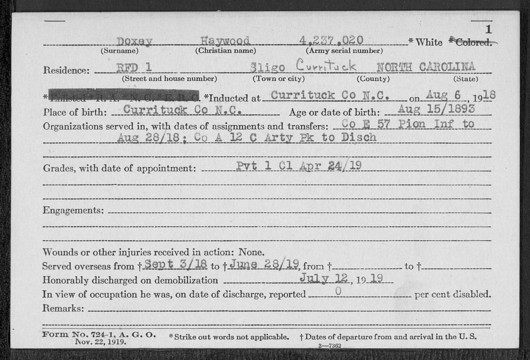 1
Doxey Haywood 4,237,020 * White * Colored.
(Surname) (Christian name) (Army serial number)
Residence: RFD 1 Sligo Currituck NORTH CAROLINA
(Street and house number) (Town or city) (County) (State)
*Inducted at Currituck Co N.C. on Aug 6, 1918
Place of birth: Currituck Co N.C. Age or date of birth: Aug 15/1893
Organizations served in, with dates of assignments and transfers: Co E 57 Pion Inf to
Aug 28/18; Co A 12 C Arty Pk to Disch
Grades, with date of appointment: Pvt 1 Cl Apr 24/19
Engagements:
Wounds or other injuries received in action: None.
Served overseas from † Sept 3/18 to † June 28/19, from † to †
Honorably discharged on demobilization July 12, 1919
In view of occupation he was, on date of discharge, reported 0 per cent disabled.
Remarks:
Form No. 724-1, A. G. O. * Strike out words not applicable. † Dates of departure from and arrival in the U. S.
Nov. 22, 1919.